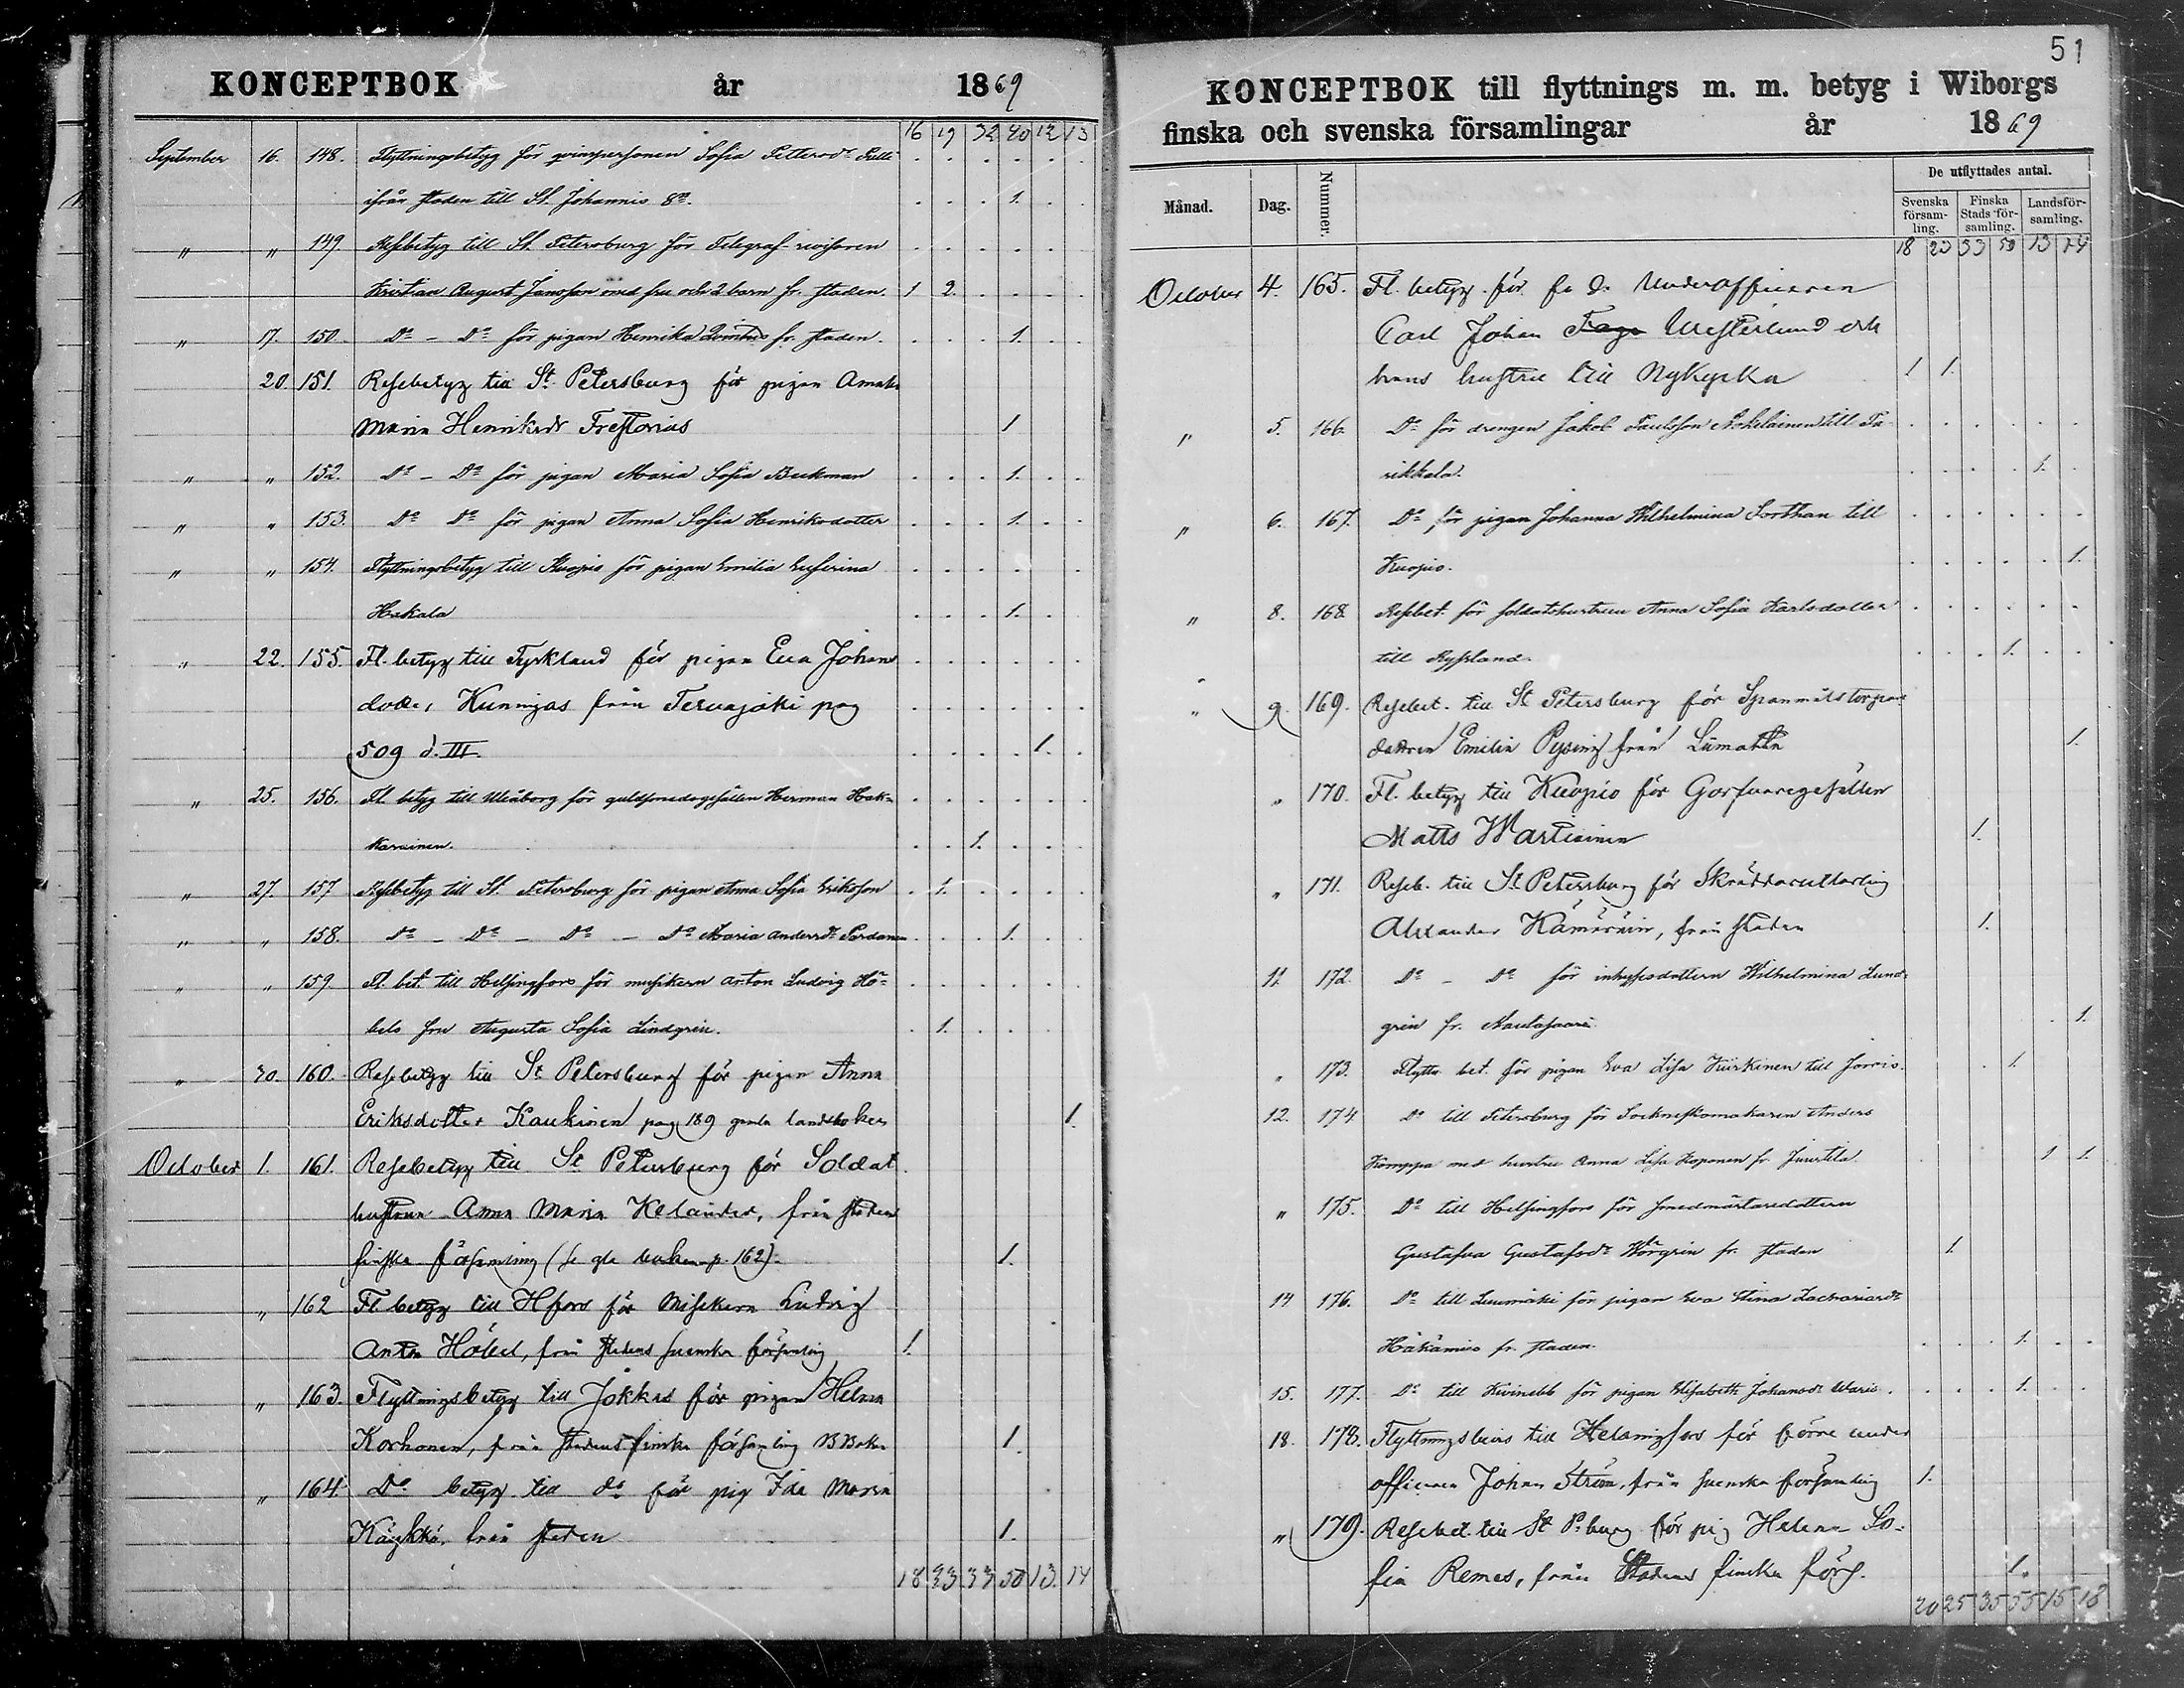 KONCEPTBOK år 1869
16 19 32 40 12 13
September 16. 148. Flyttningsbetyg för qvinspersonen Sofia Petersdr
ifrån staden till St. Johannis 1.
" " 149. Resebetyg till St. Petersburg för Telegraf-revisoren
Kristian August Jansson med fru och 2 barn fr. staden. 1 2.
" 17. 150. Do - Do för pigan Henrika fr. staden. 1.
20. 151. Resebetyg till St. Petersburg för pigan
Maria Henriksdr 1
" " 152. Do - Do för pigan Maria Sofia Beckman 1.
" " 153. Do Do för pigan Anna Sofia Henriksdotter 1.
" " 154. Flyttningsbetyg till Kuopio för pigan Emilia Eufrina
Hakala 1.
" 22. 155. Fl. betyg till Tyskland för pigan Eva Johans
dotter Kuningas från Tervajoki pag
509 d. III. 1.
" 25. 156. Fl. betyg till Uleåborg för guldsmedsgesällen Herman Hak-
karainen. 1.
" 27. 157 Resebetyg till St. Petersburg för pigan Anna Sofia Eriksson 1.
" " 158. Do - Do - Do - Do Maria Andersdr 1.
" " 159 Fl. bet. till Helsingfors för musikern Anton Ludvig Hö-
bels fru Augusta Sofia Lindgren. 1.
" 30. 160. Resebetyg till St. Petersburg för pigan Anna
Eriksdotter Kaukinen pag 189 gamla landsboken 1.
October 1. 161. Resebetyg till St. Petersburg för Soldat
hustrun Anna Maria Helander, från stadens
finska församling (se gla boken p. 162). 1.
" 162 Fl betyg till Hfors för Musikern Ludvig
Anton Höbel, från stadens svenska församling 1.
" 163. Flyttningsbetyg till Jokkas för pigan Helena
Korhonen, från stadens finska församling 1.
" 164. Do betyg till do för pig Ida Maria
Käyhkö, från staden 1.
18 23 33 50 13. 14
51
KONCEPTBOK till flyttnings m. m. betyg i Wiborgs
finska och svenska församlingar år 1869
Månad. Dag. Nummer. De utflyttades antal.
Svenska försam-ling. Finska Stads för-samling. Landsför-samling.
18 23 33 50 13 14
October 4. 165. Fl. betyg för f. d. Underofficeren
Carl Johan Westerlund och
hans hustru till Nykyrka 1 1.
" 5. 166. Do för drengen Jakob Paulsson Nokelainen till Pa-
rikkala. 1.
" 6. 167. Do för pigan Johanna Wilhelmina Sorthan till
Kuopio. 1.
" 8. 168. Resebet. för soldatshustrun Anna Sofia Karlsdotter
till Ryssland. 1.
" 9. 169. Resebet. till St Petersburg för Spanmålstorpare
dottren Emilia från Liimatta 1.
" 170. Fl. betyg till Kuopio för Garfvaregesällen
Matts Martiainen 1.
" 171. Reseb. till St Petersburg för Skräddarelärling
Alexander Hämäläinen, från staden 1.
11. 172. Do - Do för inhysesdottern Wilhelmina Lund-
gren fr. Nautasaari 1.
" 173. Flyttn. bet. för pigan Eva Lisa Kiiskinen till Jorois. 1.
12. 174 Do till Petersburg för Sockneskomakaren Anders
Komppa med hustru Anna Lisa Koponen fr. Juustila. 1 1.
" 175. Do till Helsingfors för smedmästaredottern
Gustafva Gustafsdr fr. staden 1.
14 176. Do till Luumäki för pigan Eva Stina Zachariasdr
fr. staden. 1.
15. 177. Do till Kivinebb för pigan Elisabeth Johansdr 1.
18. 178. Flyttningsbevis till Helsingfors för förre under
officeren Johan Ström, från svenska församling 1.
" 179. Resebet. till St P.burg för pig Helena So-
fia Remes, från Stadens finska förs. 1.
20 25 35 55 15 18